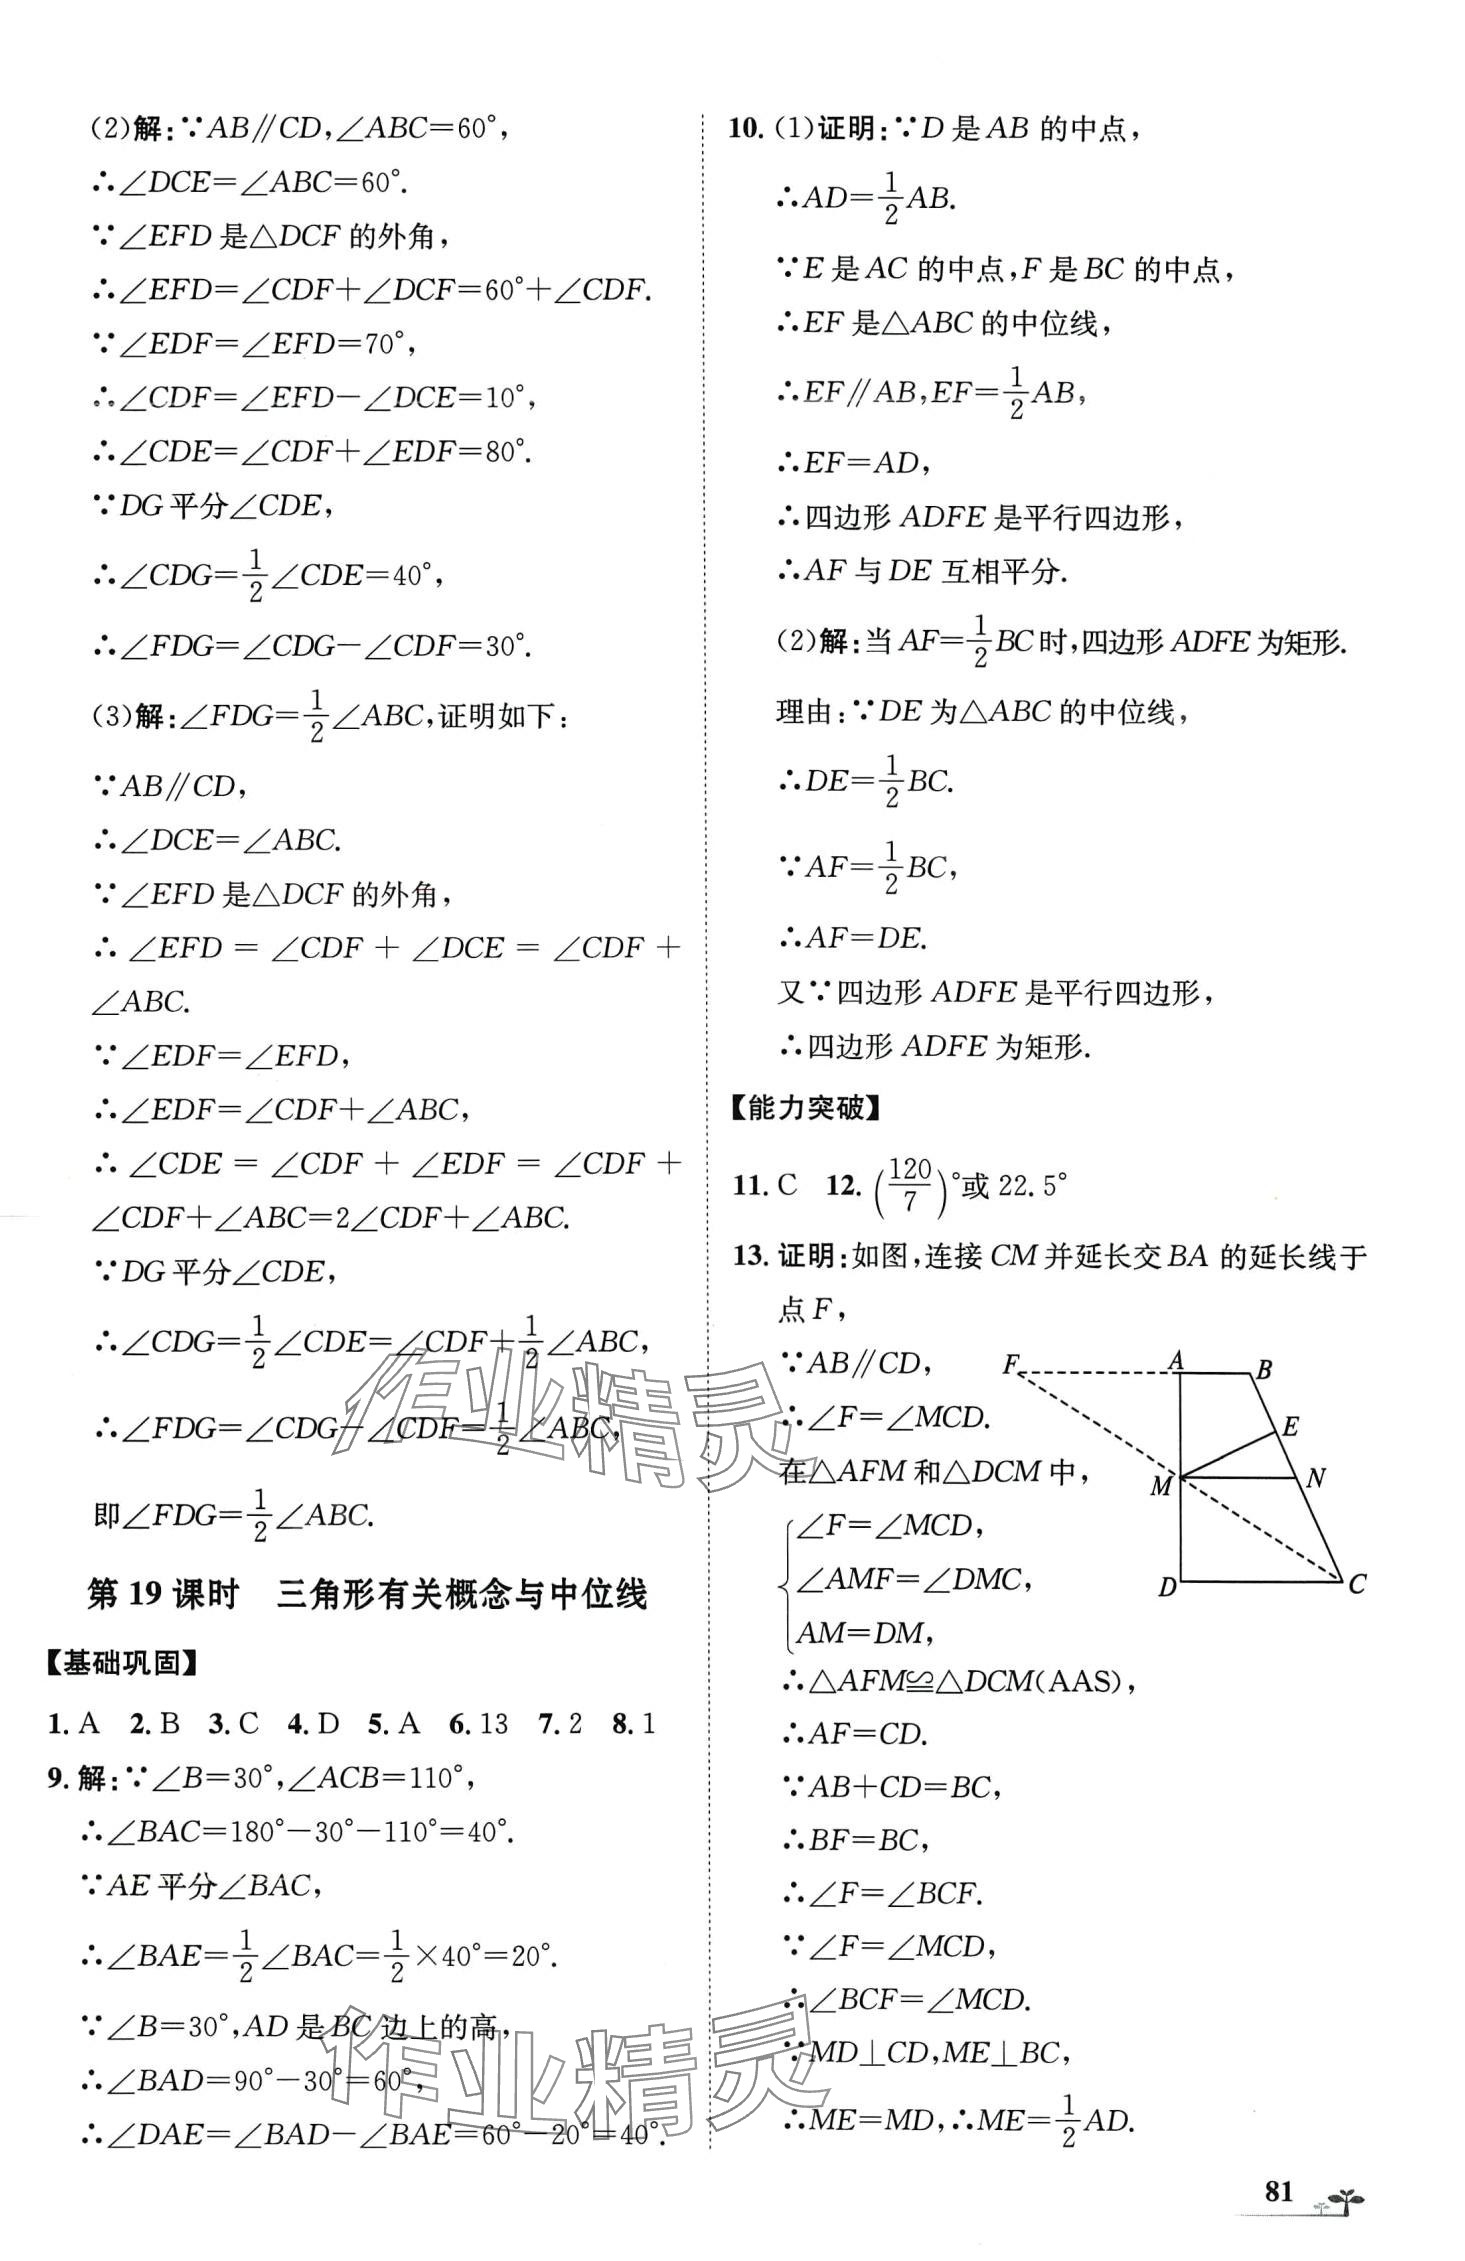 (2)解:∵AB∥CD,∠ABC=60°,
∴∠DCE=∠ABC=60°.
∵∠EFD是△DCF的外角,
∴∠EFD=∠CDF+∠DCF=60°+∠CDF.
∵∠EDF=∠EFD=70°,
∴∠CDF=∠EFD-∠DCE=10°,
∴∠CDE=∠CDF+∠EDF=80°.
∵DG平分∠CDE,
∴∠CDG=1/2∠CDE=40°,
∴∠FDG=∠CDG-∠CDF=30°.
(3)解:∠FDG=1/2∠ABC,证明如下:
∵AB∥CD,
∴∠DCE=∠ABC.
∵∠EFD是△DCF的外角,
∴ ∠EFD = ∠CDF + ∠DCE = ∠CDF +
∠ABC.
∵∠EDF=∠EFD,
∴∠EDF=∠CDF+∠ABC,
∴ ∠CDE = ∠CDF + ∠EDF = ∠CDF +
∠CDF+∠ABC=2∠CDF+∠ABC.
∵DG平分∠CDE,
∴∠CDG=1/2∠CDE=∠CDF+1/2∠ABC,
∴∠FDG=∠CDG-∠CDF=1/2∠ABC,
即∠FDG=1/2∠ABC.
第19课时 三角形有关概念与中位线
【基础巩固】
1.A 2.B 3.C 4.D 5.A 6.13 7.2 8.1
9.解:∵∠B=30°,∠ACB=110°,
∴∠BAC=180°-30°-110°=40°.
∵AE平分∠BAC,
∴∠BAE=1/2∠BAC=1/2×40°=20°.
∵∠B=30°,AD是BC边上的高,
∴∠BAD=90°-30°=60°,
∴∠DAE=∠BAD-∠BAE=60°-20°=40°.
10.(1)证明:∵D是AB的中点,
∴AD=1/2AB.
∵E是AC的中点,F是BC的中点,
∴EF是△ABC的中位线,
∴EF∥AB,EF=1/2AB,
∴EF=AD,
∴四边形ADFE是平行四边形,
∴AF与DE互相平分.
(2)解:当AF=1/2BC时,四边形ADFE为矩形.
理由:∵DE为△ABC的中位线,
∴DE=1/2BC.
∵AF=1/2BC,
∴AF=DE.
又∵四边形ADFE是平行四边形,
∴四边形ADFE为矩形.
【能力突破】
11.C 12.(120/7)°或22.5°
13.证明:如图,连接CM并延长交BA的延长线于
点F,
∵AB∥CD,
∴∠F=∠MCD.
在△AFM和△DCM中,
∠F=∠MCD,
∠AMF=∠DMC,
AM=DM,
F A B
E
M N
D C
∴△AFM≌△DCM(AAS),
∴AF=CD.
∵AB+CD=BC,
∴BF=BC,
∴∠F=∠BCF.
∵∠F=∠MCD,
∴∠BCF=∠MCD.
∵MD⊥CD,ME⊥BC,
∴ME=MD,∴ME=1/2AD.
作业精灵
作业精灵
81